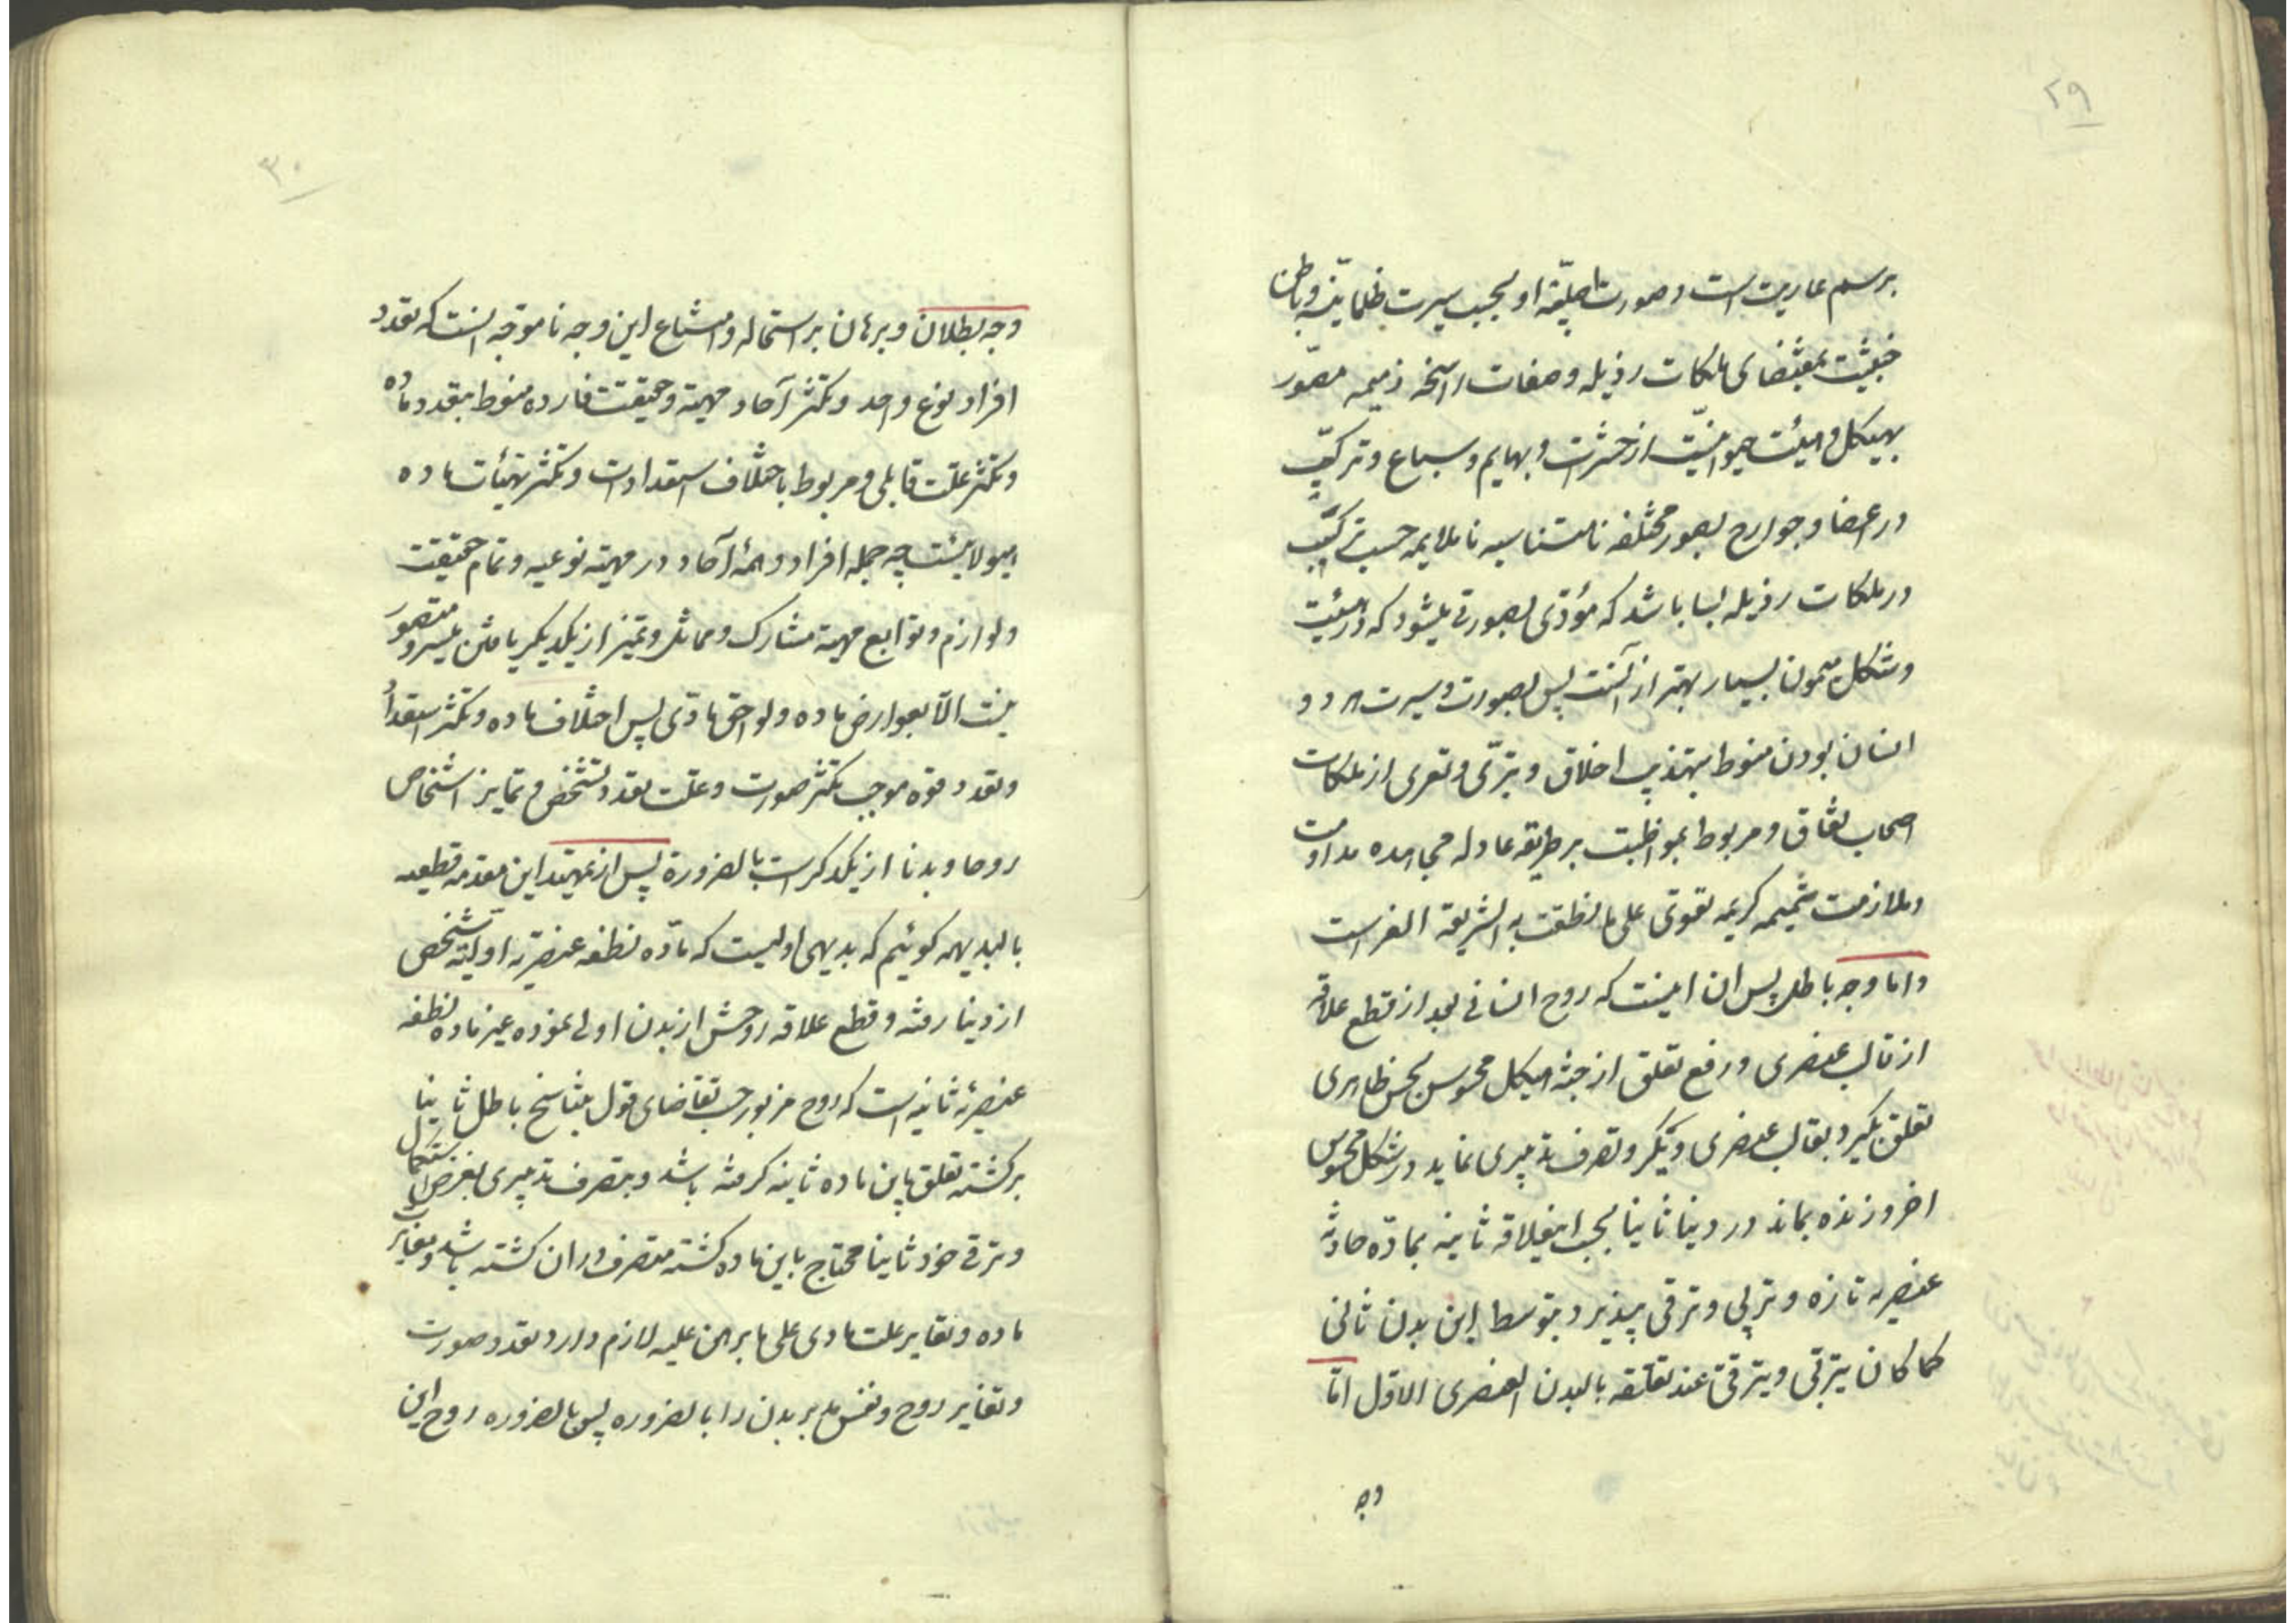 ۲۹
برسم عاریت است و صورت اصلیّهٔ او بحسب سیرت ظلمانیّه و باطن
خبیثیت بمقتضای ملکات رذیله و صفات راسخه ذمیمه مصوّر
بهیکل و هیئت حیوانیّت از حشرت و بهایم و سباع و ترکیب
در اعضا و جوارح بصور مختلفه نامتناسبه ناملایمه حسب ترکیب
در ملکات رذیله بسا باشد که مؤدّی بصورتی میشود که در هیئت
و شکل میمون بسیار بهتر از آنست پس بصورت و سیرت هر دو
انسان بودن منوط بتهذیب اخلاق و تبرّی و تعری از ملکات
اصحاب نفاق و مربوط بمواظبت بر طریقه عادله مجاهده مداومت
و ملازمت شمیمه کریمه تقوی علی ما نطقت به الشریقة الغراست
و اما وجه باطل پس ان اینست که روح انسانی بعد از قطع علاقه
از قالب عنصری و رفع تعلق از جثه هیکل محسوس بحس ظاهری
تعلق بگیرد بقالب عنصری دیگر و تصرف تدبیری نماید در شکل محسوس
اخر و زنده بماند در دنیا ثانیا بحسب این علاقه ثانیه بمادّه حادثه
عنصریه تازه و تربی و ترقی پپذیرد بتوسط این بدن ثانی
کما کان یتربّی و یترقّی عند تعلّقه بالبدن العنصری الاوّل امّا
وجه
۳۰
وجه بطلان و برهان بر استحاله و امتناع این وجه ناموجّه اینست که تعدد
افراد نوع واحد و تکثر آحاد مهیّة و حقیقت فارده منوط بتعدد مادّه
و تکثر علت قابلی و مربوط باختلاف استعدادات و تکثر تهیئات ماده
هیولائیست چه جمله افراد و همهٔ آحاد در مهیّة نوعیه و تمام حقیقت
و لوازم و توابع مهیة مشارک و مماثل و تمیز از یکدیکر یافتن میسر و متصور
نیست الّا بعوارض ماده و لواحق مادّی پس اختلاف ماده و تکثر استعداد
و تعدد قوه موجب تکثر صورت و علت تعدد تشخص و تمایز اشخاص
روحا و بدنا از یکدکر است بالضرورة پس از تمهید این مقدمه قطعیه
بالبدیهه کوئیم که بدیهی اولیست که مادّه نطفه عنصریّه اولیّه شخص
از دنیا رفته و قطع علاقه روحش از بدن اولی نموده غیر ماده نطفه
عنصریّه ثانیه است که روح مزبور حسب تقاضای قول بتناسخ باطل ثانیا
برکشته تعلق باین ماده ثانیه کرفته باشد و بتصرف تدبیری بغرض استکمال
و ترقی خود ثانیا محتاج باین ماده کشته متصرف در ان کشته باشد و مغایرت
ماده و تغایر علت مادی علی ما برهن علیه لازم دارد تعدد صورت
و تغایر روح و نفس مدبر بدن را بالضروره پس بالضروره روح این